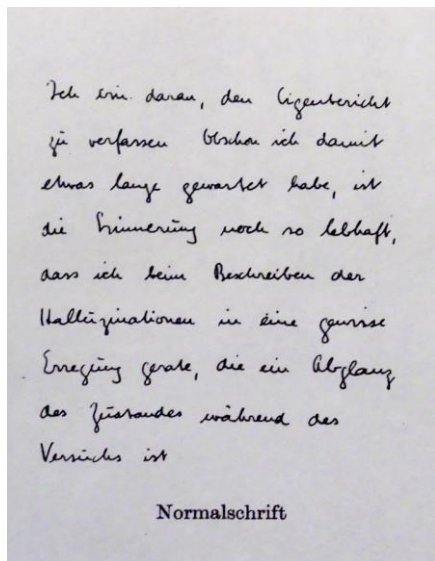 Ich bin daran, den Eigenbericht
zu verfassen Obschon ich damit
etwas lange gewartet habe, ist
die Erinnerung noch so lebhaft,
dass ich beim Beschreiben der
Halluzinationen in eine gewisse
Erregung gerate, die ein Abglanz
des Zustandes während des
Versuchs ist
Normalschrift